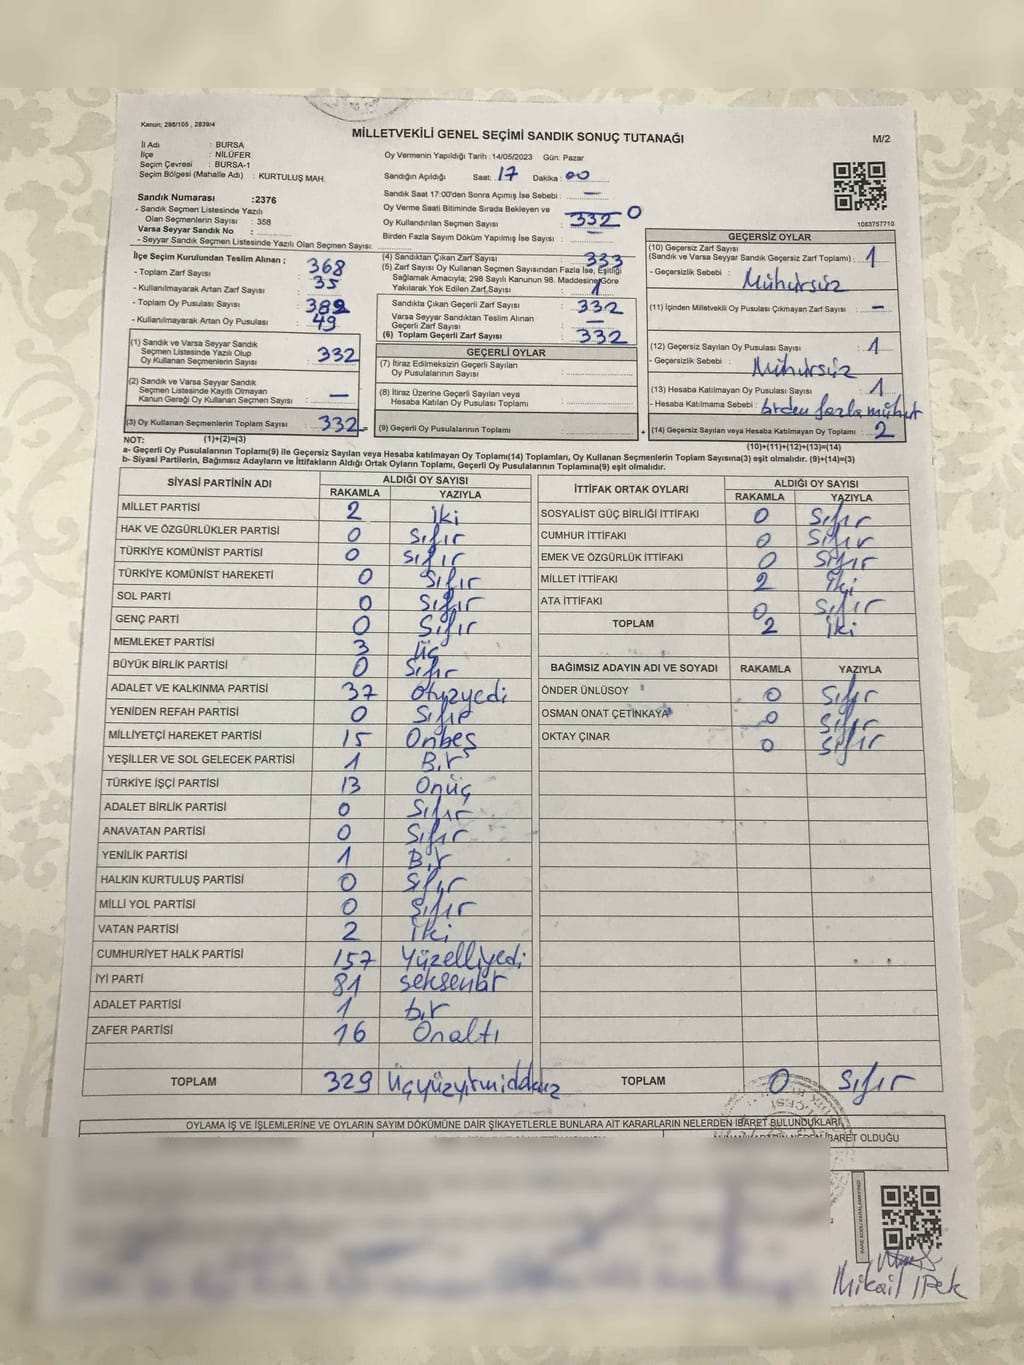 Kanun; 298/105 , 2839/4
MİLLETVEKİLİ GENEL SEÇİMİ SANDIK SONUÇ TUTANAĞI
M/2
İl Adı : BURSA
İlçe : NİLÜFER
Seçim Çevresi : BURSA-1
Seçim Bölgesi (Mahalle Adı) : KURTULUŞ MAH.
Sandık Numarası :2376
- Sandık Seçmen Listesinde Yazılı
Olan Seçmenlerin Sayısı : 358
Varsa Seyyar Sandık No :
- Seyyar Sandık Seçmen Listesinde Yazılı Olan Seçmen Sayısı:
Oy Vermenin Yapıldığı Tarih : 14/05/2023 Gün: Pazar
Sandığın Açıldığı Saat: 17 Dakika : 00
Sandık Saat 17:00'den Sonra Açımış İse Sebebi : —
Oy Verme Saati Bitiminde Sırada Bekleyen ve
Oy Kullandırılan Seçmen Sayısı : 332 0
Birden Fazla Sayım Döküm Yapılmış İse Sayısı : —
1083757710
İlçe Seçim Kurulundan Teslim Alınan ;
- Toplam Zarf Sayısı : 368
- Kullanılmayarak Artan Zarf Sayısı : 35
- Toplam Oy Pusulası Sayısı :
- Kullanılmayarak Artan Oy Pusulası : 49
(1) Sandık ve Varsa Seyyar Sandık
Seçmen Listesinde Yazılı Olup
Oy Kullanan Seçmenlerin Sayısı : 332
(2) Sandık ve Varsa Seyyar Sandık
Seçmen Listesinde Kayıtlı Olmayan
Kanun Gereği Oy Kullanan Seçmen Sayısı : —
(3) Oy Kullanan Seçmenlerin Toplam Sayısı : 332 =
(4) Sandıktan Çıkan Zarf Sayısı : 333
(5) Zarf Sayısı Oy Kullanan Seçmen Sayısından Fazla İse, Eşitliği
Sağlamak Amacıyla; 298 Sayılı Kanunun 98. Maddesine Göre
Yakılarak Yok Edilen Zarf Sayısı : 1
Sandıkta Çıkan Geçerli Zarf Sayısı : 332
Varsa Seyyar Sandıktan Teslim Alınan
Geçerli Zarf Sayısı : —
(6) Toplam Geçerli Zarf Sayısı : 332
GEÇERLİ OYLAR
(7) İtiraz Edilmeksizin Geçerli Sayılan
Oy Pusulalarının Sayısı :
(8) İtiraz Üzerine Geçerli Sayılan veya
Hesaba Katılan Oy Pusulası Toplamı :
(9) Geçerli Oy Pusulalarının Toplamı : +
GEÇERSİZ OYLAR
(10) Geçersiz Zarf Sayısı
(Sandık ve Varsa Seyyar Sandık Geçersiz Zarf Toplamı) : 1
- Geçersizlik Sebebi : Mühürsüz
(11) İçinden Milletvekili Oy Pusulası Çıkmayan Zarf Sayısı : —
(12) Geçersiz Sayılan Oy Pusulası Sayısı : 1
- Geçersizlik Sebebi : Mühürsüz
(13) Hesaba Katılmayan Oy Pusulası Sayısı : 1
- Hesaba Katılmama Sebebi : birden fazla mühür
(14) Geçersiz Sayılan veya Hesaba Katılmayan Oy Toplamı : 2
NOT: (1)+(2)=(3)
(10)+(11)+(12)+(13)=(14)
a- Geçerli Oy Pusulalarının Toplamı(9) ile Geçersiz Sayılan veya Hesaba katılmayan Oy Toplamı(14) Toplamları, Oy Kullanan Seçmenlerin Toplam Sayısına(3) eşit olmalıdır. (9)+(14)=(3)
b- Siyasi Partilerin, Bağımsız Adayların ve İttifakların Aldığı Ortak Oyların Toplamı, Geçerli Oy Pusulalarının Toplamına(9) eşit olmalıdır.
SİYASİ PARTİNİN ADI ALDIĞI OY SAYISI
RAKAMLA YAZIYLA
MİLLET PARTİSİ 2 iki
HAK VE ÖZGÜRLÜKLER PARTİSİ 0 Sıfır
TÜRKİYE KOMÜNİST PARTİSİ 0 sıfır
TÜRKİYE KOMÜNİST HAREKETİ 0 Sıfır
SOL PARTİ 0 Sıfır
GENÇ PARTİ 0 Sıfır
MEMLEKET PARTİSİ 3 üç
BÜYÜK BİRLİK PARTİSİ 0 Sıfır
ADALET VE KALKINMA PARTİSİ 37 Otuzyedi
YENİDEN REFAH PARTİSİ 0 Sıfır
MİLLİYETÇİ HAREKET PARTİSİ 15 Onbeş
YEŞİLLER VE SOL GELECEK PARTİSİ 1 Bir
TÜRKİYE İŞÇİ PARTİSİ 13 Onüç
ADALET BİRLİK PARTİSİ 0 Sıfır
ANAVATAN PARTİSİ 0 Sıfır
YENİLİK PARTİSİ 1 Bir
HALKIN KURTULUŞ PARTİSİ 0 Sıfır
MİLLİ YOL PARTİSİ 0 Sıfır
VATAN PARTİSİ 2 İki
CUMHURİYET HALK PARTİSİ 157 Yüzelliyedi
İYİ PARTİ 81 seksenbir
ADALET PARTİSİ 1 bir
ZAFER PARTİSİ 16 Onaltı
TOPLAM 329 Üçyüzyirmidokuz
İTTİFAK ORTAK OYLARI ALDIĞI OY SAYISI
RAKAMLA YAZIYLA
SOSYALİST GÜÇ BİRLİĞİ İTTİFAKI 0 Sıfır
CUMHUR İTTİFAKI 0 Sıfır
EMEK VE ÖZGÜRLÜK İTTİFAKI 0 Sıfır
MİLLET İTTİFAKI 2 iki
ATA İTTİFAKI 0 Sıfır
TOPLAM 2 iki
BAĞIMSIZ ADAYIN ADI VE SOYADI RAKAMLA YAZIYLA
ÖNDER ÜNLÜSOY 0 Sıfır
OSMAN ONAT ÇETİNKAYA 0 Sıfır
OKTAY ÇINAR 0 Sıfır
TOPLAM 0 Sıfır
OYLAMA İŞ VE İŞLEMLERİNE VE OYLARIN SAYIM DÖKÜMÜNE DAİR ŞİKAYETLERLE BUNLARA AİT KARARLARIN NELERDEN İBARET BULUNDUKLARI
İBARET OLDUĞU
Mikail İpek